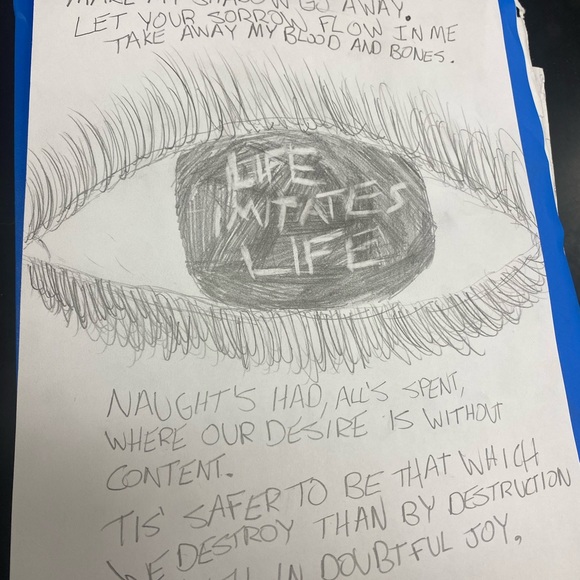 MAKE MY SHADOW GO AWAY.
LET YOUR SORROW FLOW IN ME
TAKE AWAY MY BLOOD AND BONES.
LIFE
IMITATES
LIFE
NAUGHT'S HAD, ALL'S SPENT,
WHERE OUR DESIRE IS WITHOUT
CONTENT.
TIS' SAFER TO BE THAT WHICH
WE DESTROY THAN BY DESTRUCTION
IN DOUBTFUL JOY,